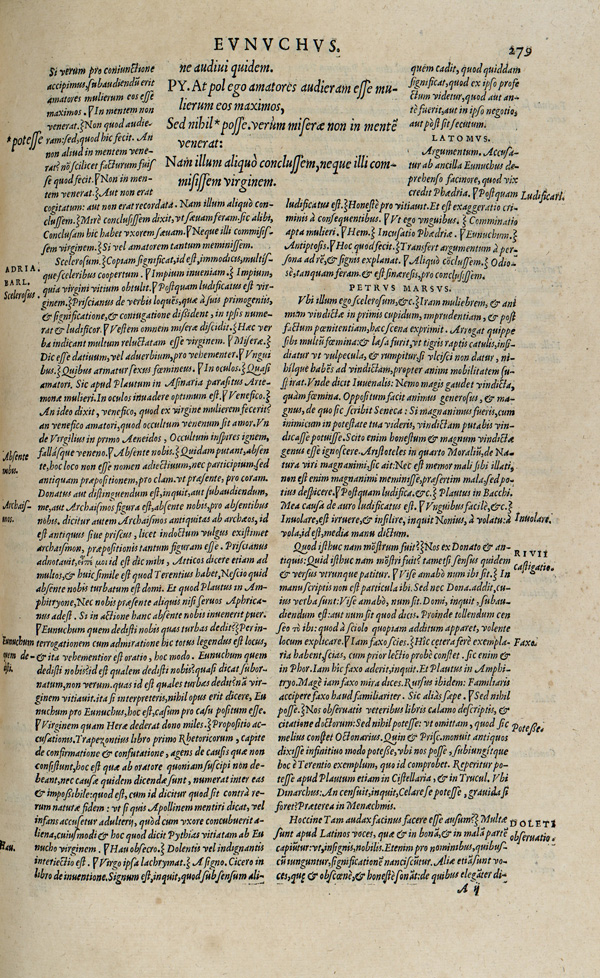 EVNVCHVS.
279
ne audiui quidem.
PY. At pol ego amatores audieram esse mu-
lierum eos maximos,
Sed nihil* posse. verùm miseræ non in mentē
venerat:
Nam illum aliquò conclusissem, neque illi com-
misissem virginem.
*potesse
Si verum pro coniunctione
accipimus, subaudiendū erit
amatores mulierum eos esse
maximos. ℣In mentem non
venerat.⁆ Non quod audie-
ram: sed, quod hic fecit. An
non aliud in mentem vene-
rat? nō scilicet facturum fuis
se quod fecit. ℣Non in men-
tem venerat.⁆ Aut non erat
cogitatum: aut non erat recordata. Nam illum aliquò con-
clussem.⁆ Mirè conclusissem dixit, vt sæuam feram. sic alibi,
Conclusam hic habet vxorem sæuam. ℣Neque illi commisis-
sem virginem.⁆ Si vel amatorem tantum meminissem.
ADRIA.
BARL.
Scelerosus.
Scelerosum.⁆ Copiam significat, id est, immodicus, multis-
que sceleribus coopertum. ℣Impium inueniam.⁆ Impium,
quia virgini vitium obtulit. ℣Postquam ludificatus est vir-
ginem.⁆ Priscianus de verbis loquēs, quæ à suis primogeniis,
& significatione, & coniugatione dissident, in ipsis nume-
rat & ludificor. ℣Vestem omnem miseræ discidit.⁆ Hæc ver
ba indicant multum reluctatam esse virginem. ℣Miseræ.⁆
Dic esse datiuum, vel aduerbium, pro vehementer. ℣Vngui
bus.⁆ Quibus armatur sexus fœmineus. ℣In oculos.⁆ Quasi
amatori. Sic apud Plautum in Asinaria parasitus Arte-
monæ mulieri. In oculos inuadere optimum est. ℣Venefico.⁆
An ideo dixit, venefico, quod ex virgine mulierem fecerit?
an venefico amatori, quod occultum venenum sit amor. Vn
de Virgilius in primo Aeneidos, Occultum inspires ignem,
fallásque veneno. ℣Absente nobis.⁆ Quidam putant, absen
te, hoc loco non esse nomen adiectiuum, nec participium, sed
antiquam præpositionem, pro clam. vt præsente, pro coram.
Absente
nobis.
Donatus aut distinguendum est, inquit, aut subaudiendum,
me, aut Archaismos figura est, absente nobis, pro absentibus
nobis. dicitur autem Archaismos antiquitas ab archæos, id
est antiquus siue priscus, licet indoctum vulgus existimet
archaismon, præpositionis tantum figuram esse. Priscianus
Archais-
mos.
adnotauit, ἐστί μοι id est dic mihi, Atticos dicere etiam ad
multos, & huic simile est quod Terentius habet, Nescio quid
absente nobis turbatum est domi. Et quod Plautus in Am-
phitryone, Nec nobis præsente aliquis nisi seruos Aphrica-
nus adest. Si in actione hanc absente nobis inuenerit puer.
℣Eunuchum quem dedisti nobis quas turbas dedit?⁆ In in-
terrogationem cum admiratione hic totus legendus est locus,
& ita vehementior est oratio, hoc modo. Eunuchum quem
dedisti nobis? id est qualem dedisti nobis? quasi dicat subor-
natum, non verum. quas id est quales turbas dedit? nā vir-
ginem vitiauit. ita si interpreteris, nihil opus erit dicere, Eu
nuchum pro Eunuchus, hoc est, casum pro casu positum esse.
Eunuchum
quem de-
disti.
℣Virginem quam Heræ dederat dono miles.⁆ Propositio ac-
cusationis. Trapezontius libro primo Rhetoricorum, capite
de confirmatione & confutatione, agens de causis quæ non
consistunt, hoc est quæ ab oratore quoniam suscipi non de-
beant, nec causæ quidem dicendæ sunt, numerat inter eas
& impossibile: quod est, cum id dicitur quod fit contrà re-
rum naturæ fidem: vt si quis Apollinem mentiri dicat, vel
infans accusetur adulterij, quòd cum vxore concubuerit a-
liena, cuiusmodi & hoc quod dicit Pythias vitiatam ab Eu
nucho virginem. ℣Hau obsecro.⁆ Dolentis vel indignantis
interiectio est. ℣Virgo ipsa lachrymat.⁆ A signo. Cicero in
libro de inuentione. Signum est, inquit, quod sub sensum ali-
Hau.
quem cadit, quod quiddam
significat, quod ex ipso profe
ctum videtur, quod aut an-
tè fuerit, aut in ipso negotio,
aut pòst sit secutum.
LATOMVS.
Argumentum. Accusa-
tur ab ancilla Eunuchus de-
prehenso facinore, quod vix
credit Phædria. ℣Postquam
Ludificari.
ludificatus est.⁆ Honestè pro vitiauit. Et est exaggeratio cri-
minis à consequentibus. ℣Vt ego vnguibus.⁆ Comminatio
apta mulieri. ℣Hem.⁆ Incusatio Phædriæ. ℣Eunuchum.⁆
Antiptosis. ℣Hoc quod fecit.⁆ Transfert argumentum à per-
sona ad rē, & signis explanat. ℣Aliquò cōclussem.⁆ Odio-
sè, tanquam feram. & est sinæresis, pro conclusissem.
PETRVS MARSVS.
Vbi illum ego scelerosum, &c.⁆ Iram muliebrem, & ani
mum vindictæ in primis cupidum, imprudentiam, & post
factum pœnitentiam, hæc scena exprimit. Arrogat quippe
sibi multū fœmina: & læsa furit, vt tigris raptis catulis, insi-
diatur vt vulpecula, & rumpitur, si vlcisci non datur, ni-
hilque habēs ad vindictam, propter animi mobilitatem su-
spirat. Vnde dicit Iuuenalis: Nemo magis gaudet vindicta,
quàm fœmina. Oppositum facit animus generosus, & ma-
gnus, de quo sic scribit Seneca: Si magnanimus fueris, cum
inimicum in potestate tua videris, vindictam putabis vin-
dicasse potuisse. Scito enim honestum & magnum vindictæ
genus esse ignoscere. Aristoteles in quarto Moraliū, de Na-
tura viri magnanimi, sic ait: Nec est memor mali sibi illati,
non est enim magnanimi meminisse, præsertim mala, sed po-
tius despicere. ℣Postquam ludifica, &c.⁆ Plautus in Bacchi.
Mea causa de auro ludificatus est. ℣Vnguibus facilè, &c.⁆
Inuolare, est irruere, & insilire, inquit Nonius, à volatu: à
vola, id est, media manu dictum.
Inuolare.
Quod isthuc nam mōstrum fuit?⁆ Nos ex Donato & an-
tiquis: Quid isthuc nam mōstri fuit? tametsi sensus quidem
& versus vtrunque patitur. ℣Vise amabò num ibi sit.⁆ In
manuscriptis non est particula ibi. Sed nec Dona. addit, cu-
ius verba sunt: Vise amabò, num sit. Domi, inquit, subau-
diendum est: aut num sit quod dicis. Proinde tollendum cen
seo rò ibi: quod à sciolo quopiam additum apparet, volente
locum explicare. ℣Iam faxo scies.⁆ Hic cetera ferè exempla-
ria habent, scias, cum prior lectio probè constet. sic enim &
in Phor. Iam hic faxo aderit, inquit. Et Plautus in Amphi-
tryo. Magè iam faxo mira dices. Rufus ibidem: Familiaris
accipere faxo haud familiariter. Sic aliàs sæpe. ℣Sed nihil
posse.⁆ Nos obseruatis veteribus libris calamo descriptis, &
citatione doctorum: Sed nihil potesse: vt omittam, quod sic
melius constet Octonarius. Quin & Prisc. monuit antiquos
dixisse infinitiuo modo potesse, vbi nos posse, subiungitque
hoc è Terentio exemplum, quo id comprobet. Reperitur po-
tesse apud Plautum etiam in Cistellaria, & in Trucul. Vbi
Dinarchus: An censuit, inquit, Celare se potesse, grauida si
foret? Præterea in Menæchmis.
RIVII
Castigatio.
Faxo.
Potesse.
Hoccine Tam audax facinus facere esse ausum?⁆ Multæ
sunt apud Latinos voces, quæ & in bonā, & in malā partē
capiūtur: vt, insignis, nobilis. Etenim pro nominibus, quibus-
cū iunguntur, significationē nanciscūtur. Aliæ etiā sunt vo-
ces, quę & obscœnè, & honestè sonāt: de quibus elegāter di-
DOLETI
obseruatio.
A ij